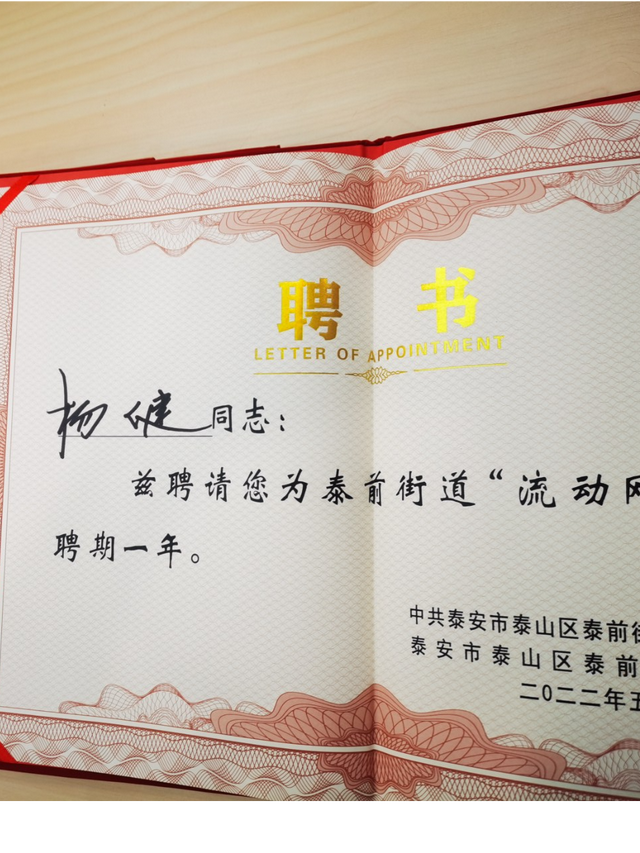 聘 书
LETTER OF APPOINTMENT
杨健同志：
兹聘请您为泰前街道“流动网
聘期一年。
中共泰安市泰山区泰前街
泰安市泰山区泰前
二〇二二年五